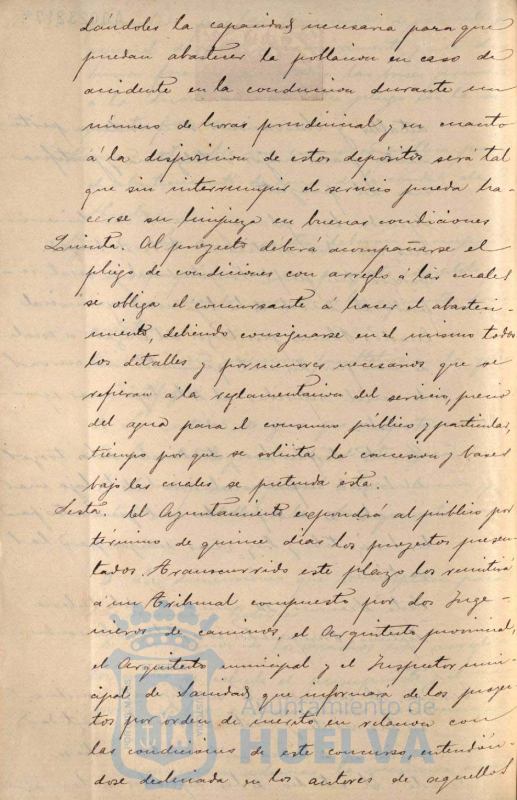 dandoles la capacidad necesaria para que
puedan abastecer la poblacion en caso de
accidente en la conduccion durante un
número de horas prudencial y en cuanto
á la disposicion de estos depósitos será tal
que sin interrumpir el servicio pueda ha-
cerse su limpieza en buenas condiciones
Quinta. Al proyecto deberá acompañarse el
pliego de condiciones con arreglo á las cuales
se obliga el concursante á hacer el abasteci-
miento, debiendo consignarse en el mismo todos
los detalles y pormenores necesarios que se
refieran á la reglamentacion del servicio, precio
del agua para el consumo público y particular,
tiempo por que se solicita la concesion y bases
bajo las cuales se pretenda ésta.
Sesta. El Ayuntamiento expondrá al público por
término de quince dias los proyectos presen-
tados. Transcurrido este plazo los remitirá
á un Tribunal compuesto por dos Inge-
nieros de caminos, el Arquitecto provincial,
el Arquitecto municipal y el Inspector muni-
cipal de Sanidad, que informará de los proyec-
tos por orden de mérito en relacion con
las condiciones de este concurso, entendién-
dose declinada en los autores de aquellos
Ayuntamiento de
HUELVA